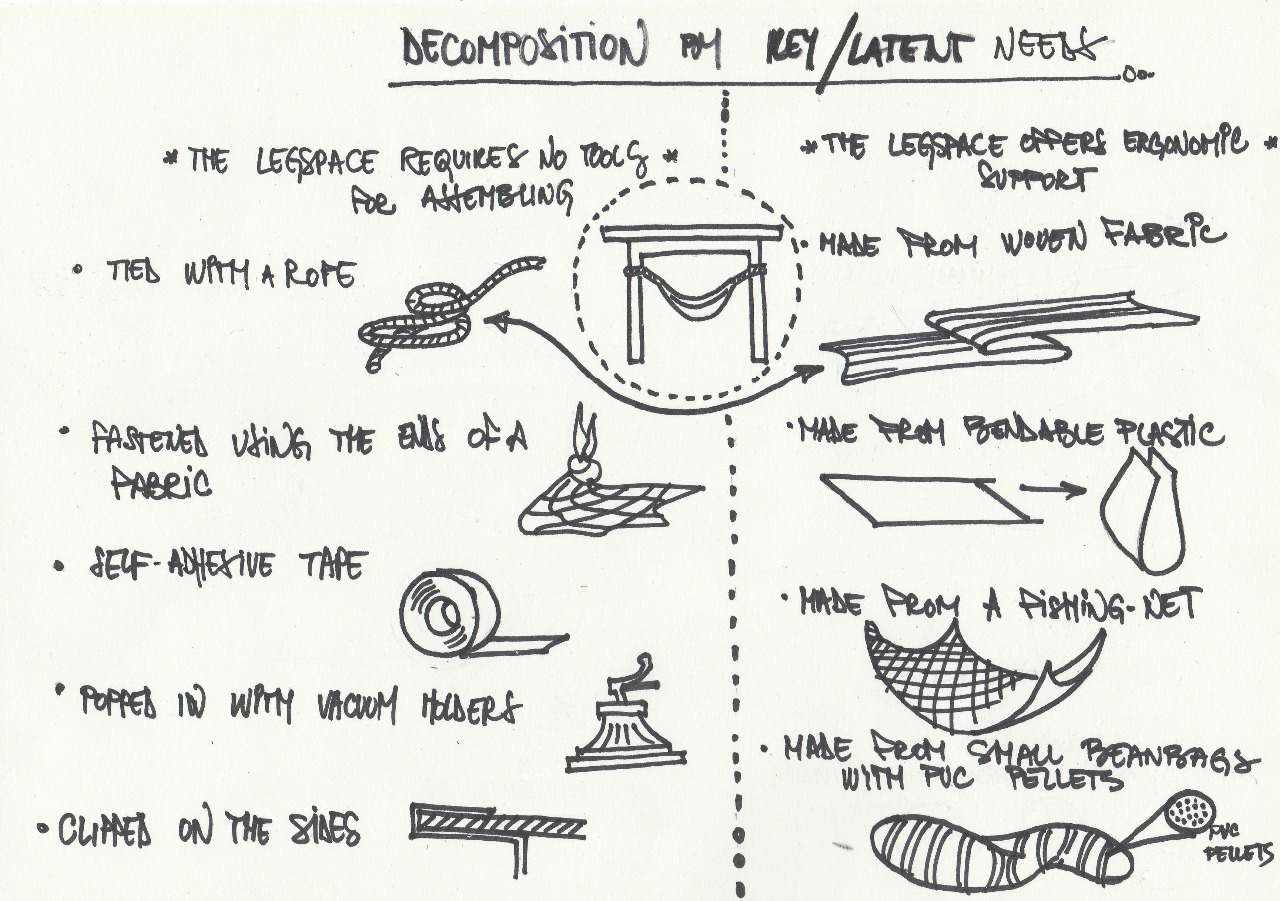 DECOMPOSITION BY KEY/LATENT NEEDS...
* THE LEGSPACE REQUIRES NO TOOLS *
FOR ASSEMBLING
• TIED WITH A ROPE
• FASTENED USING THE ENDS OF A
FABRIC
• SELF-ADHESIVE TAPE
• POPPED IN WITH VACUUM HOLDERS
• CLIPPED ON THE SIDES
* THE LEGSPACE OFFERS ERGONOMIC *
SUPPORT
• MADE FROM WOVEN FABRIC
• MADE FROM BENDABLE PLASTIC
• MADE FROM A FISHING-NET
• MADE FROM SMALL BEANBAGS
WITH PVC PELLETS
PVC
PELLETS